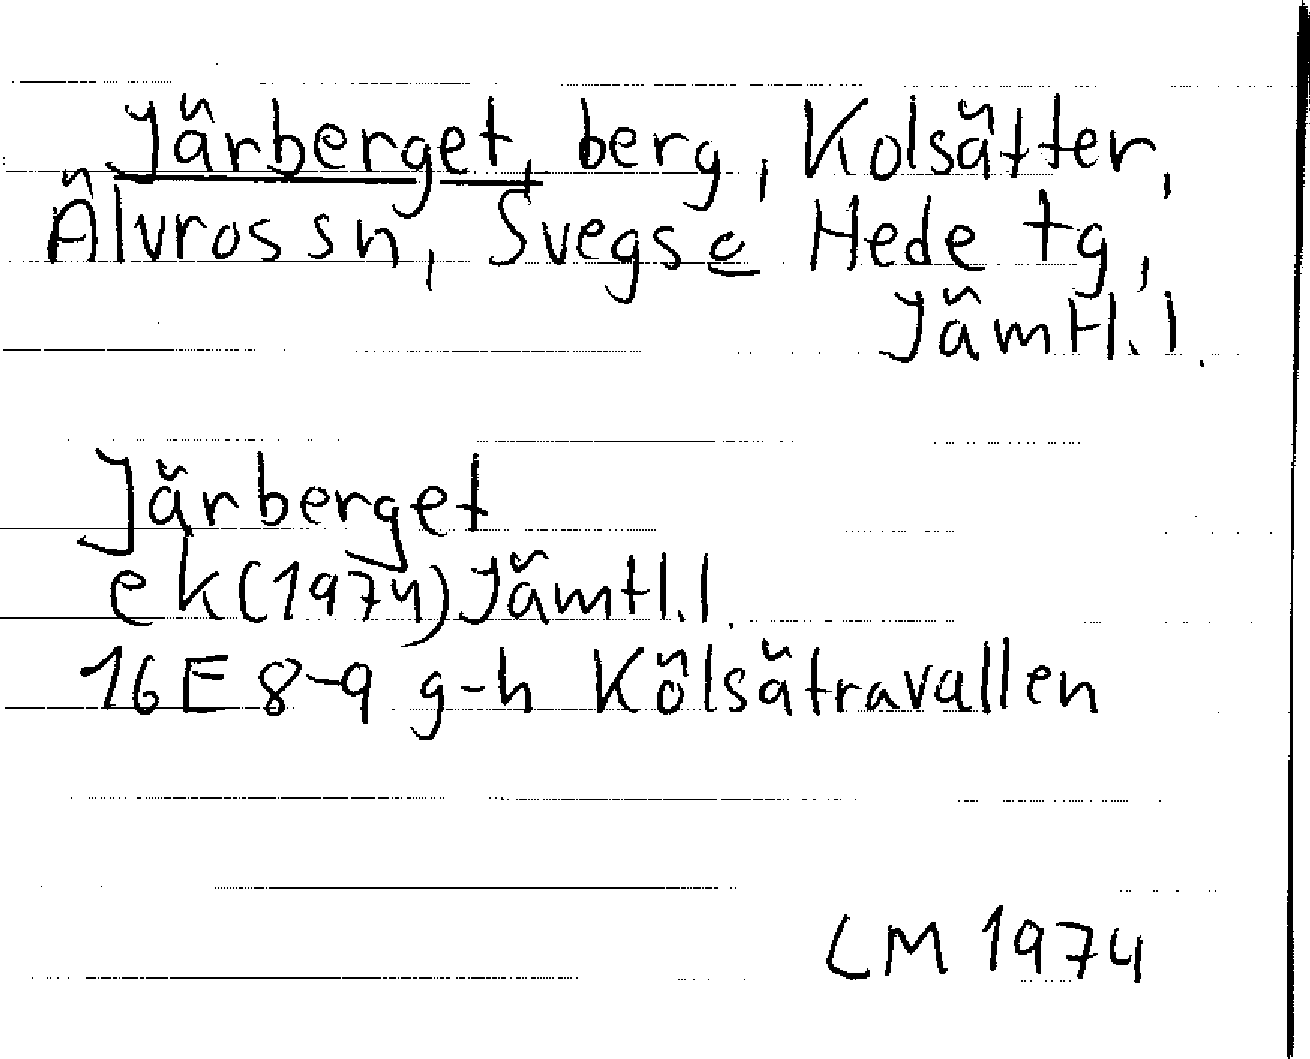 Järberget, berg, Kolsätter,
Älvros sn, Svegs o Hede tg,
Jämtl. l.
Järberget
ek (1974) Jämtl. l.
16E 8-9 g-h Kölsätravallen
LM 1974